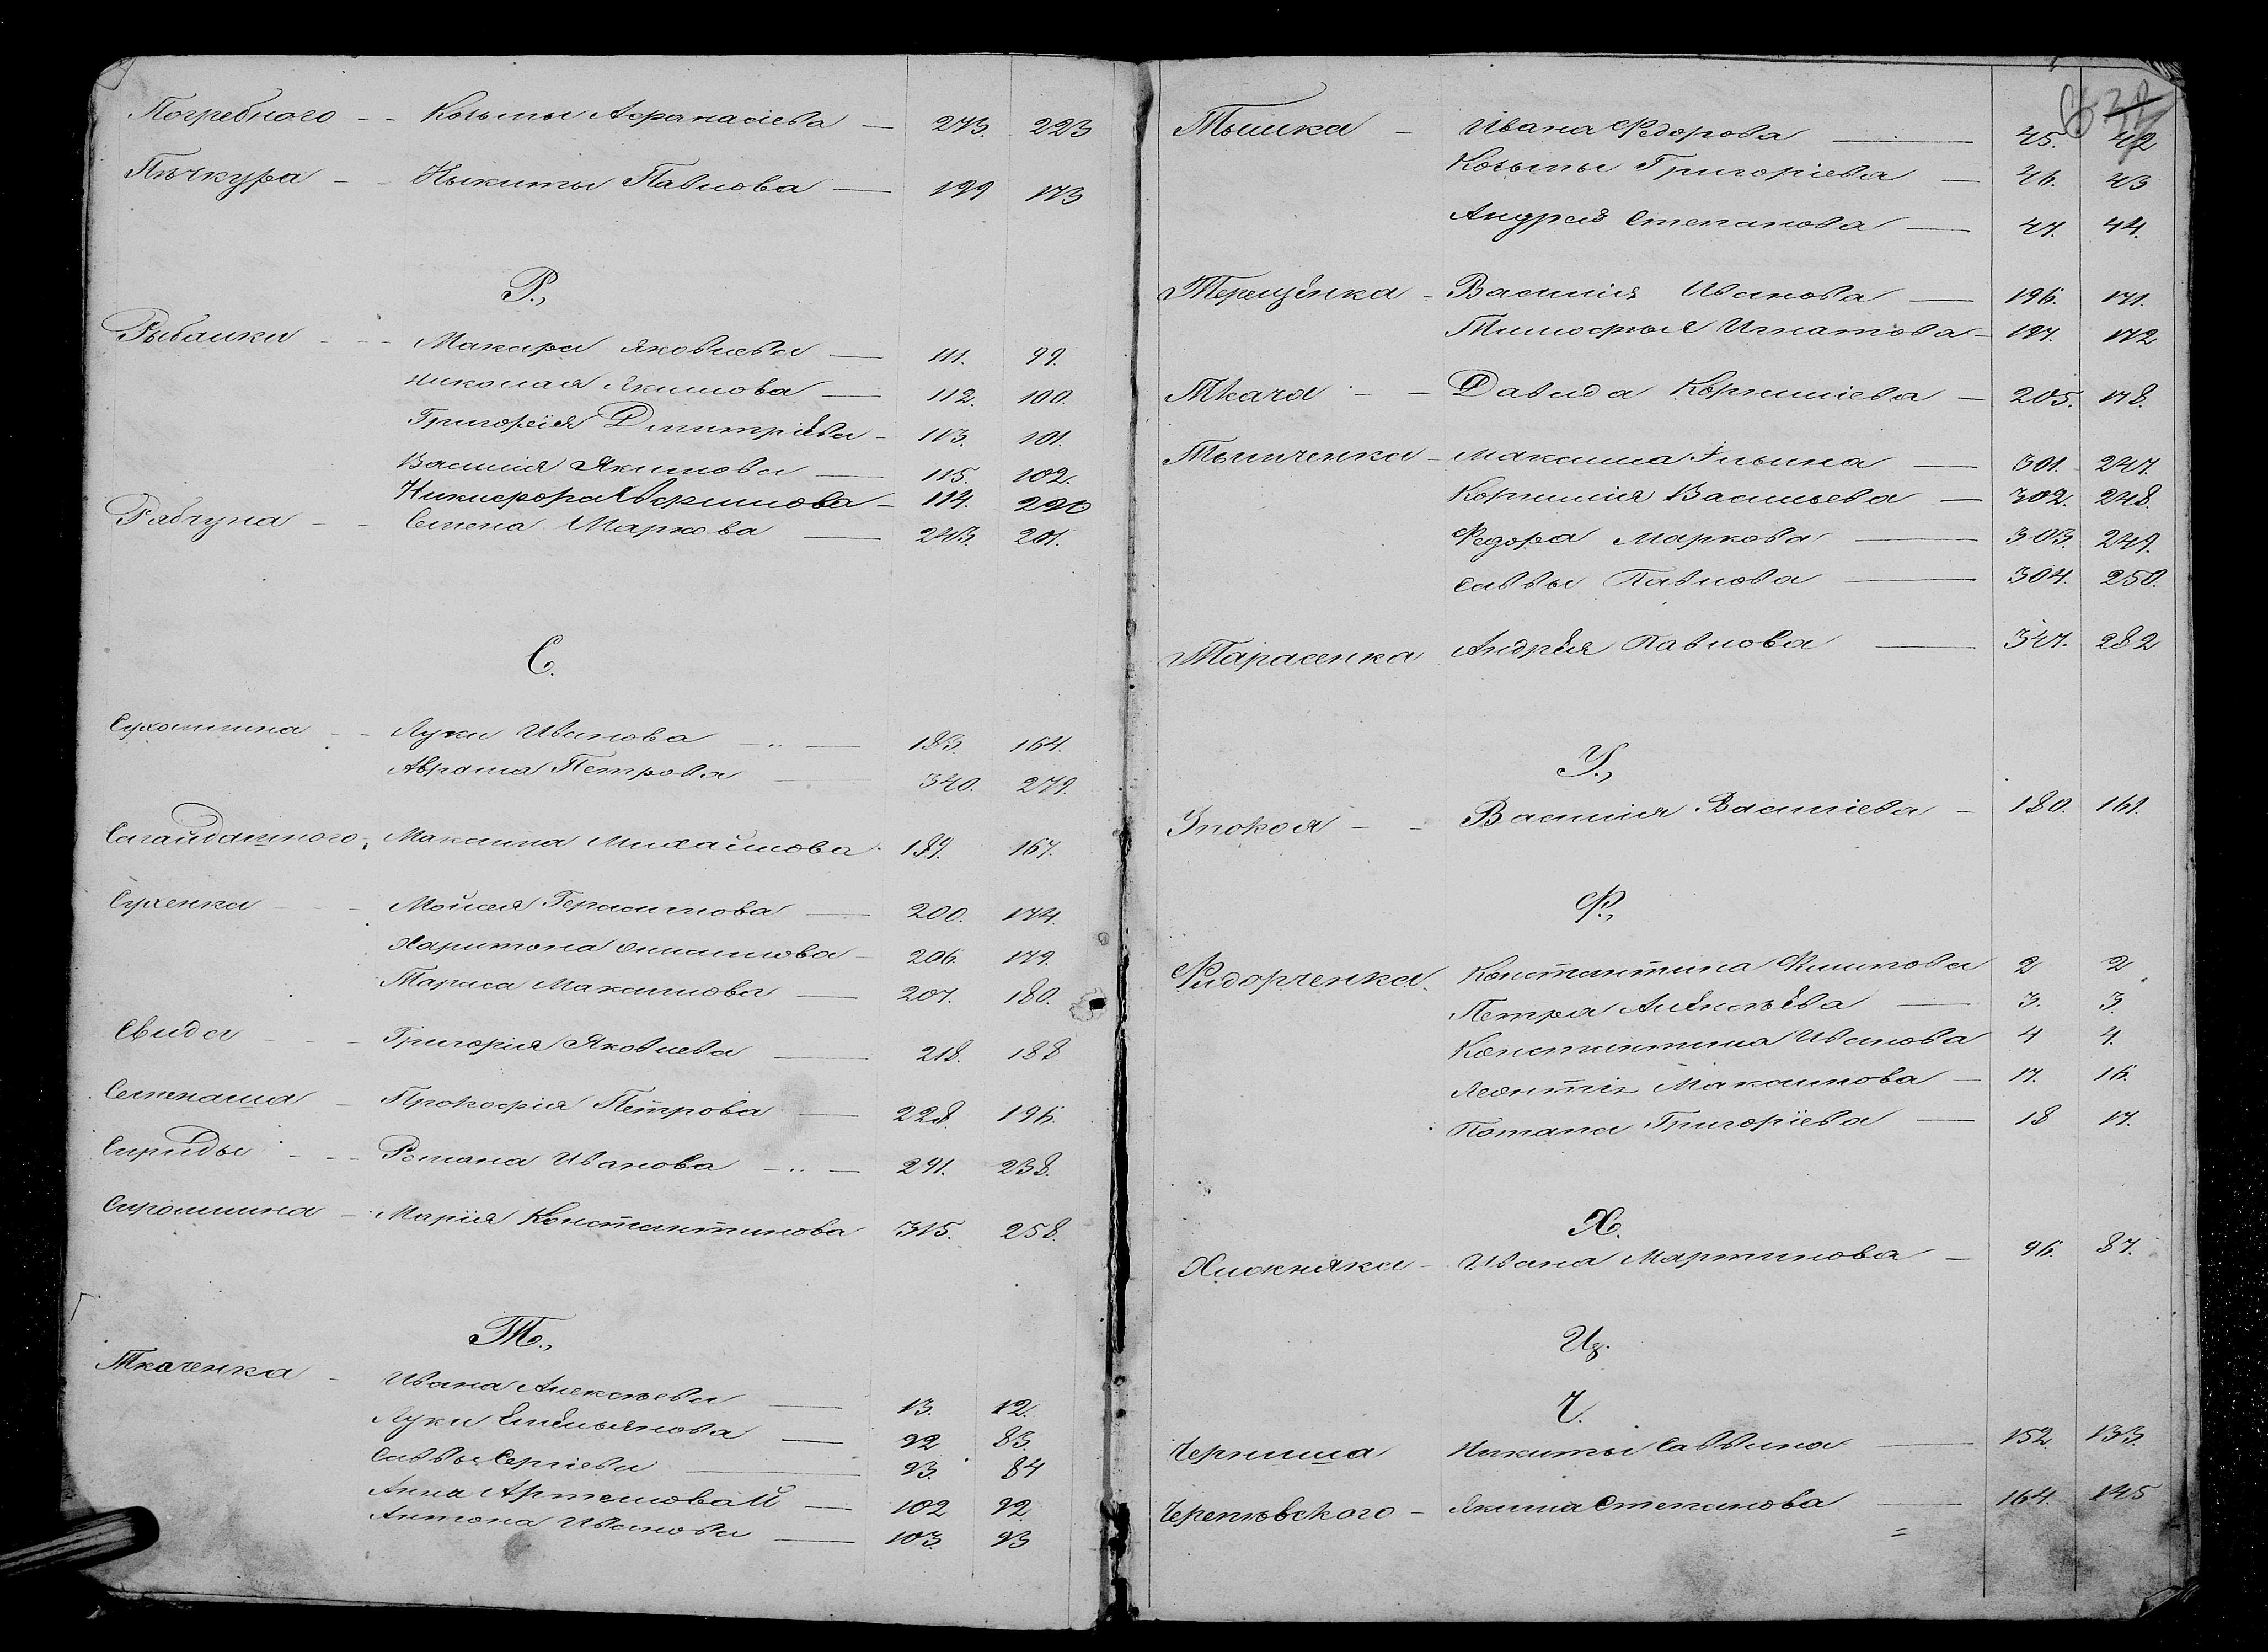 Погребного - - Козьмы Афанасіева — 273. 223
Пѣчкура - - Никиты Павлова — 199 173
Р.,
Рыбалки - - Макара Яковлева — 111. 99.
Николая Якимова — 112. 100.
Григорія Дмитріева - 113. 101.
Василія Якимова — 115. 102.
Никифора — 114. 220
Рябчуна - - Семена Маркова — 243. 201.
С.
Сухомлина - - Луки Иванова — 183. 164.
Аврама Петрова — 340. 279.
Сагайдашного, Максима Михайлова. 189. 167.
Сученка - - Мойсея Герасимова — 200. 174.
Харитона - 206. 179.
Тараса Максимова — 207. 180.
Свида - - - Григорія Яковлева — 218. 188
Семенаша - Прокофія Петрова — 228. 196.
Спириды - - - Романа Иванова — 291. 238.
Сиромина - Марія Константинова 315. 258.
Т.,
Ткаченка - Ивана Алексѣева — 13. 12.
Луки Емельянова — 92 83.
Саввы Сергіева — 93. 84
Анна Артемовай — 102 92.
Антона Иванова — 103. 93
Тышка - Ивана Федорова — 45. 42
Козьмы Григоріева — 46. 43
Андрея Степанова — 47. 44.
Терещенка - Василія Иванова — 196. 171.
Тимофія Игнатова - 197. 172
Ткача - - Давида Корниліева - 205. 178.
Тымченка - Максима Ильина — 301. 247.
Корнилія Васильева — 302. 248.
Федора Маркова — 303. 249.
Саввы Павлова — 304. 250.
Тарасенка Андрія Павлова — 347. 282
У.,
Упокоя - - Василія Василіева - 180. 161.
Ф.,
Фидорченка. Константина Филипова 2 2
Петра Алексѣева — 3. 3.
Константина Иванова 4 4.
Леонтія Максимова — 17. 16.
Потапа Григоріева — 18 17.
Х.
Ивана Мартинова — 96. 87.
Ц.
Ч.
Черниша Никиты Саввина — 152. 133.
Черепювского - Якима Степанова — 164. 145
=